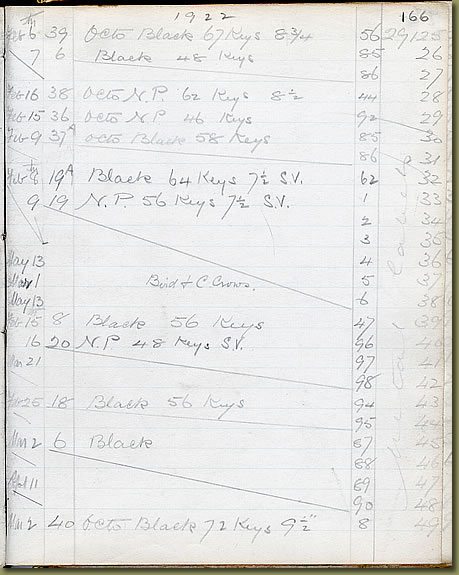 1922 166
Feb 6 39 Octo Black 67 Keys 8 3/4 56 29125
7 6 Black 48 Keys 85 26
86 27
Feb 16 38 Octo N.P. 62 Keys 8 1/2 44 28
Feb 15 36 Octo N.P 46 Keys 92 29
Feb 9 37A Octo Black 58 Keys 85 30
86 31
Feb 8 19A Black 64 Keys 7 1/2 S.V. 62 32
9 19 N.P 56 Keys 7 1/2 S.V. 1 33
2 34
3 35
May 13 4 36
Mar 1 Bird & C Crows. 5 37
May 13 6 38
15 8 Black 56 Keys 47 39
16 20 N.P 48 Keys S.V. 96 40
Mar 21 97 41
98 42
Feb 25 18 Black 56 Keys 94 43
95 44
Mar 2 6 Black 67 45
68 46
11 69 47
90 48
Mar 2 40 Octo Black 72 Keys 9 1/2" 8 49